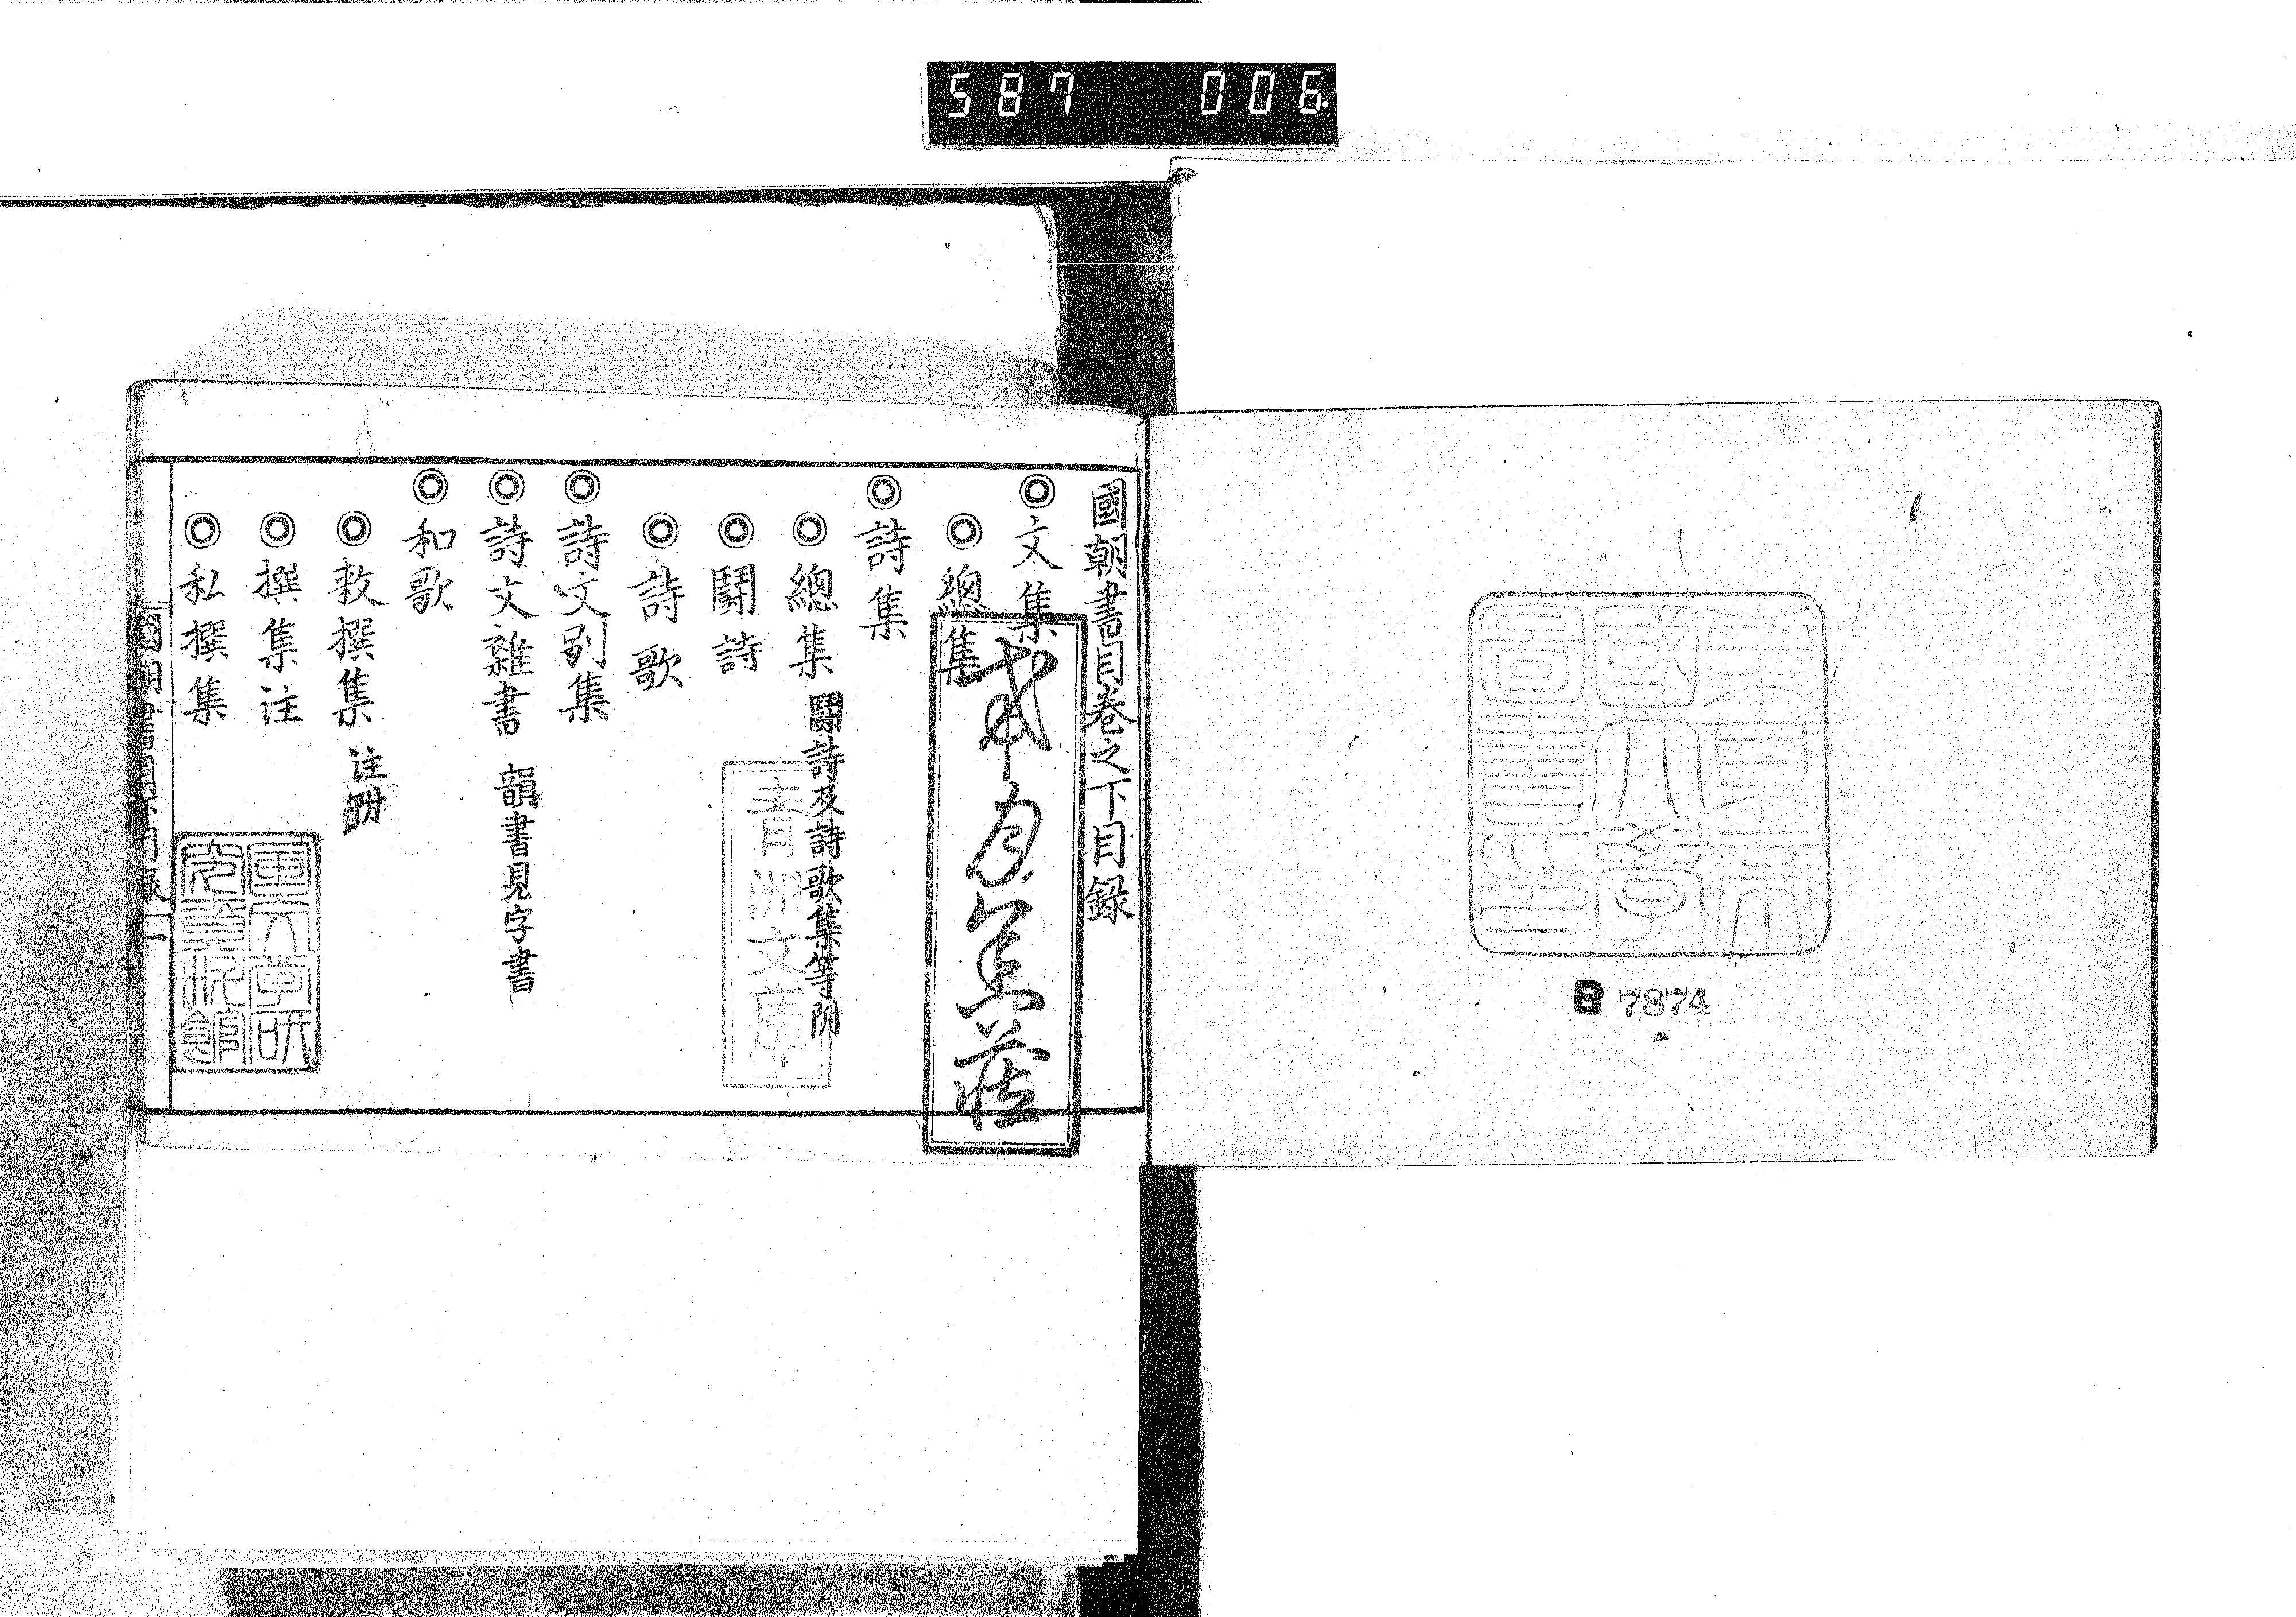 587 006.
東京帝
國大學
圖書之
B 7874
國朝書目卷之下目錄
◎文集
◎總集
◎詩集
◎總集 鬪詩及詩歌集等附
◎鬪詩
◎詩歌
◎詩文別集
◎詩文雜書 韻書見字書
◎和歌
◎敕撰集 注附
◎撰集注
◎私撰集
青洲文庫